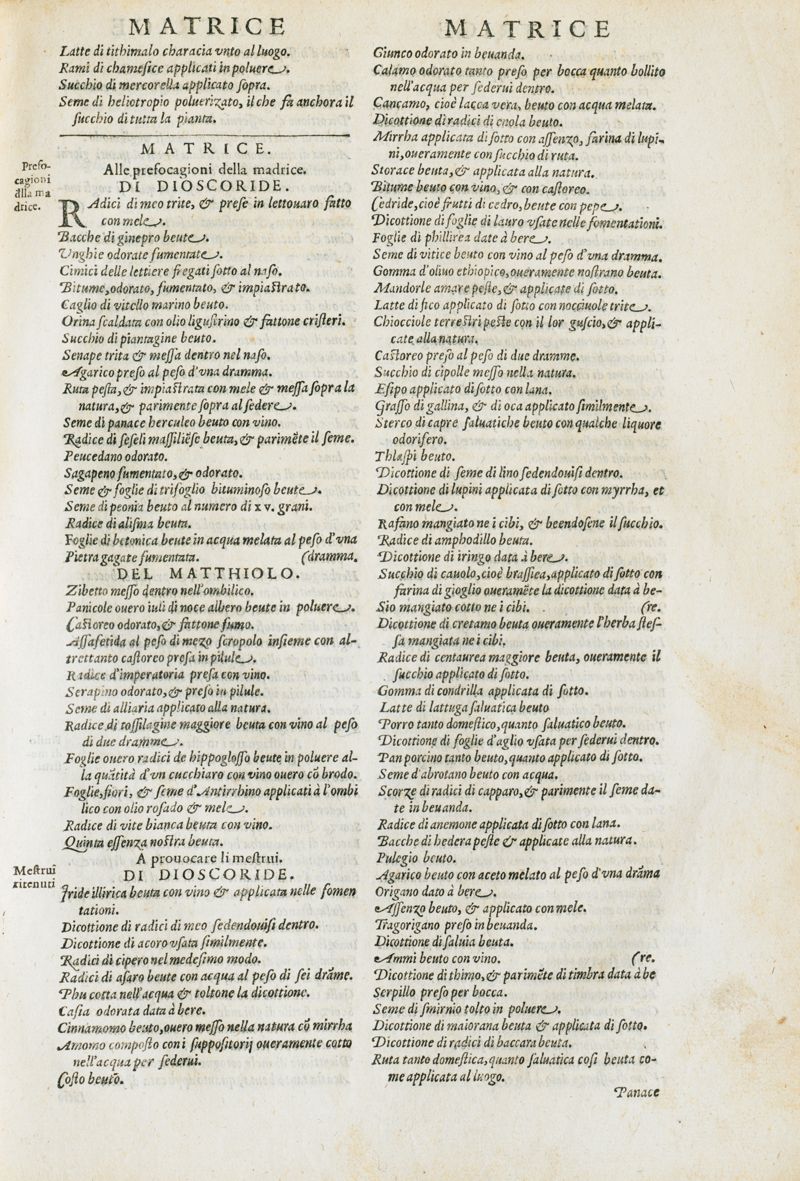 MATRICE
Latte di tithimalo characia vnto al luogo.
Rami di chamesice applicati in poluere.
Succhio di mercorella applicato sopra.
Seme di heliotropio poluerizato, il che fa anchora il
succhio di tutta la pianta.
MATRICE.
Prefo-
cagioni
dlla ma
drice.
Alle prefocagioni della madrice.
DI DIOSCORIDE.
RAdici di meo trite, & prese in lettouaro fatto
con mele.
Bacche di ginepro beute.
Vnghie odorate fumentate.
Cimici delle lettiere fregati sotto al naso.
Bitume, odorato, fumentato, & impiastrato.
Caglio di vitello marino beuto.
Orina scaldata con olio ligustrino & fattone cristeri.
Succhio di piantagine beuto.
Senape trita & messa dentro nel naso.
Agarico preso al peso d'vna dramma.
Ruta pesta, & impiastrata con mele & messa sopra la
natura, & parimente sopra al sedere.
Seme di panace herculeo beuto con vino.
Radice di seseli massiliēse beuta, & parimēte il seme.
Peucedano odorato.
Sagapeno fumentato, & odorato.
Seme & foglie di trifoglio bituminoso beute.
Seme di peonia beuto al numero di xv. grani.
Radice di alisma beuta.
Foglie di betonica beute in acqua melata al peso d'vna
Pietra gagate fumentata. (dramma.
DEL MATTHIOLO.
Zibetto messo dentro nell'ombilico.
Panicole ouero iuli di noce albero beute in poluere.
Castoreo odorato, & fattone fumo.
Assafetida al peso di mezo scropolo insieme con al-
trettanto castoreo presa in pilule.
Radice d'imperatoria presa con vino.
Serapino odorato, & preso in pilule.
Seme di alliaria applicato alla natura.
Radice di tossilagine maggiore beuta con vino al peso
di due dramme.
Foglie ouero radici de hippoglosso beute in poluere al-
la quātità d'vn cucchiaro con vino ouero cō brodo.
Foglie, fiori, & seme d'Antirrhino applicati à l'ombi
lico con olio rosado & mele.
Radice di vite bianca beuta con vino.
Quinta essenza nostra beuta.
Mestrui
ritenuti
A prouocare li mestrui.
DI DIOSCORIDE.
Iride illirica beuta con vino & applicata nelle fomen
tationi.
Dicottione di radici di meo sedendouisi dentro.
Dicottione di acoro vsata similmente.
Radici di cipero nel medesimo modo.
Radici di asaro beute con acqua al peso di sei drāme.
Phu cotta nell'acqua & toltone la dicottione.
Casia odorata data à bere.
Cinnamomo beuto, ouero messo nella natura cō mirrha
Amomo composto con i suppositorij oueramente cotto
nell'acqua per sederui.
Costo beuto.
MATRICE
Giunco odorato in beuanda.
Calamo odorato tanto preso per bocca quanto bollito
nell'acqua per sederui dentro.
Cancamo, cioè lacca vera, beuto con acqua melata.
Dicottione di radici di enola beuto.
Mirrha applicata di sotto con assenzo, farina di lupi-
ni, oueramente con succhio di ruta.
Storace beuta, & applicata alla natura.
Bitume beuto con vino, & con castoreo.
Cedride, cioè frutti di cedro, beute con pepe.
Dicottione di foglie di lauro vsate nelle fomentationi.
Foglie di phillirea date à bere.
Seme di vitice beuto con vino al peso d'vna dramma.
Gomma d'oliuo ethiopico, oueramente nostrano beuta.
Mandorle amare peste, & applicate di sotto.
Latte di fico applicato di sotto con nocciuole trite.
Chiocciole terrestri peste con il lor guscio, & appli-
cate alla natura.
Castoreo preso al peso di due dramme.
Succhio di cipolle messo nella natura.
Esipo applicato di sotto con lana.
Grasso di gallina, & di oca applicato similmente.
Sterco di capre saluatiche beuto con qualche liquore
odorifero.
Thlaspi beuto.
Dicottione di seme di lino sedendouisi dentro.
Dicottione di lupini applicata di sotto con myrrha, et
con mele.
Rafano mangiato ne i cibi, & beendosene il succhio.
Radice di amphodillo beuta.
Dicottione di iringo data à bere.
Succhio di cauolo, cioè brassica, applicato di sotto con
farina di gioglio oueramēte la dicottione data à be-
Sio mangiato cotto ne i cibi. (re.
Dicottione di cretamo beuta oueramente l'herba stes-
sa mangiata ne i cibi.
Radice di centaurea maggiore beuta, oueramente il
succhio applicato di sotto.
Gomma di condrilla applicata di sotto.
Latte di lattuga saluatica beuto
Porro tanto domestico, quanto saluatico beuto.
Dicottione di foglie d'aglio vsata per sederui dentro.
Pan porcino tanto beuto, quanto applicato di sotto.
Seme d'abrotano beuto con acqua.
Scorze di radici di capparo, & parimente il seme da-
te in beuanda.
Radice di anemone applicata di sotto con lana.
Bacche di hedera peste & applicate alla natura.
Pulegio beuto.
Agarico beuto con aceto melato al peso d'vna drāma
Origano dato à bere.
Assenzo beuto, & applicato con mele.
Tragorigano preso in beuanda.
Dicottione di saluia beuta.
Ammi beuto con vino. (re.
Dicottione di thimo, & parimēte di timbra data à be
Serpillo preso per bocca.
Seme di smirnio tolto in poluere.
Dicottione di maiorana beuta & applicata di sotto.
Dicottione di radici di baccara beuta.
Ruta tanto domestica, quanto saluatica cosi beuta co-
me applicata al luogo.
Panace